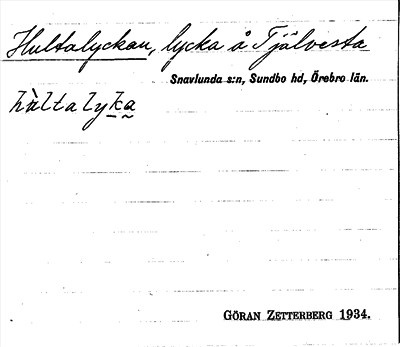 Hultalyckan, lycka å Tjälvesta
Snavlunda s:n, Sundbo hd, Örebro län.
hàltalyka
GÖRAN ZETTERBERG 1934.